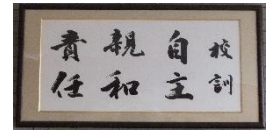 校訓
自主
親和
責任